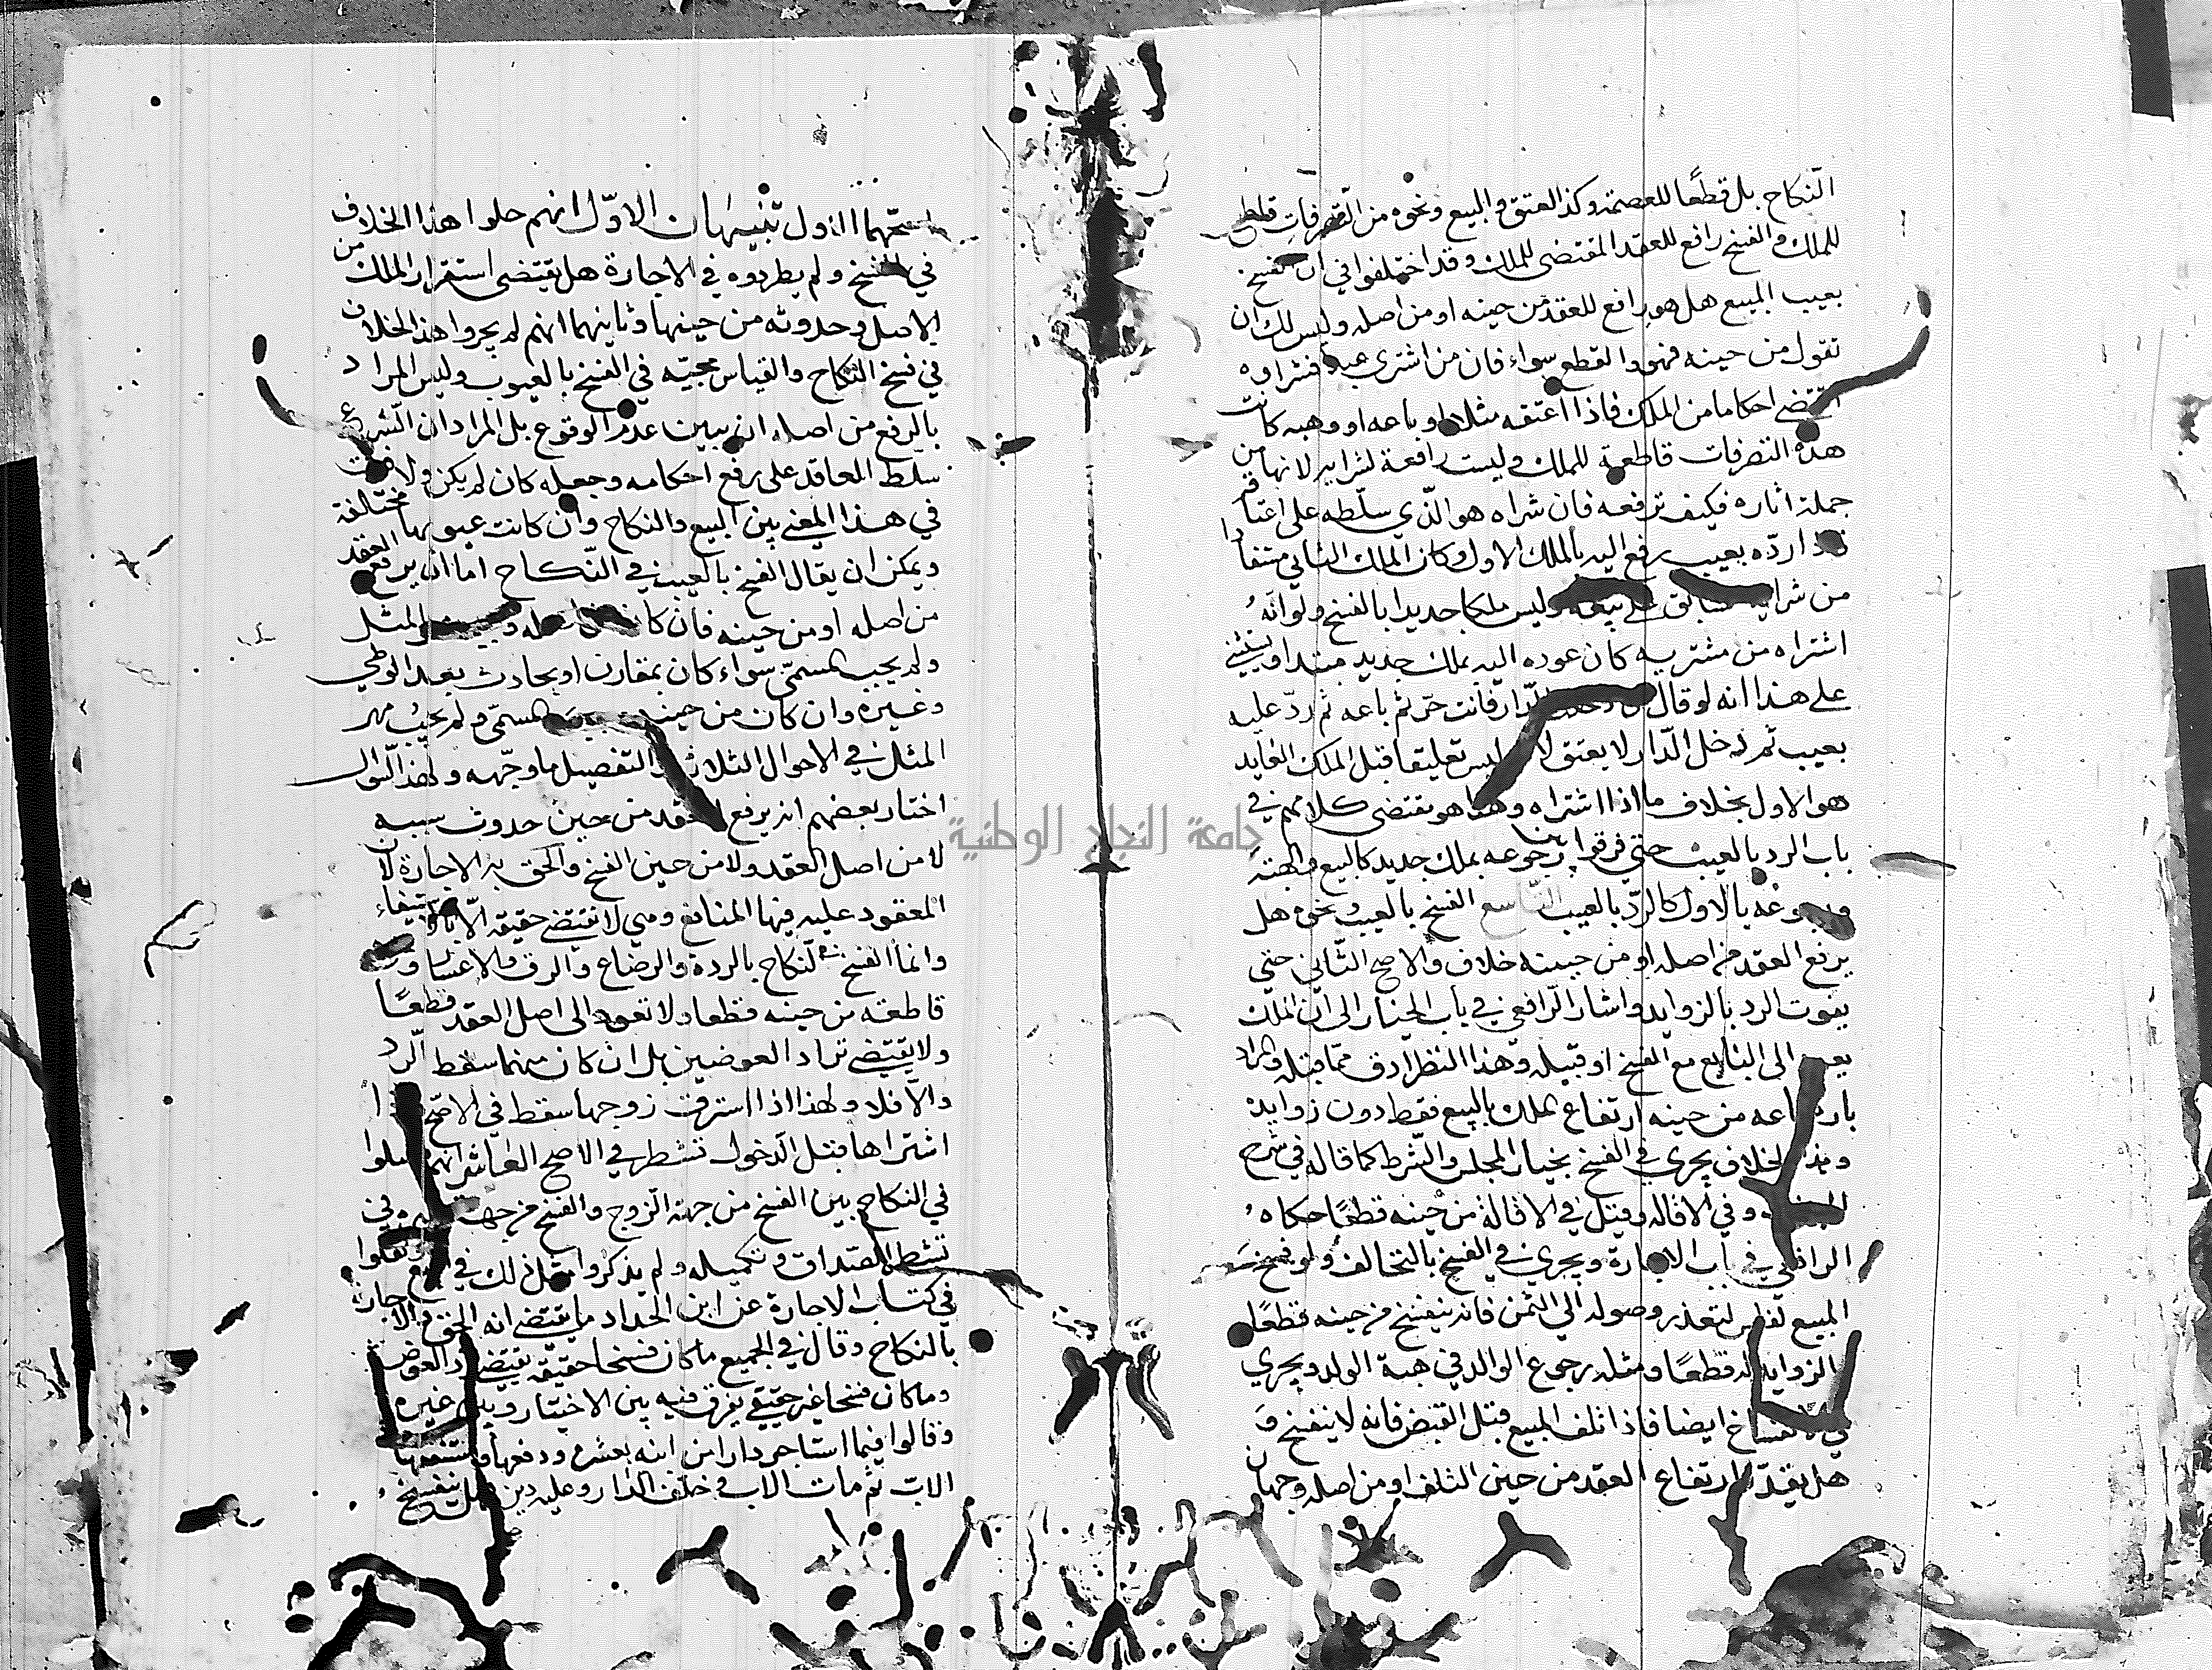 النكاح بل قطعًا للعصمة وكذا العتق والبيع ونحوه من التصرفات قاطع
للملك والفسخ رافع للعقد المقتضى للملك وقد اختلفوا في ان فسخ
بعيب المبيع هل هو رافع للعقد من حينه او من اصله وليس لك ان
تقول من حينه فهو والقطع سواء فان من اشترى عبدا فشراوه
اقتضى احكاما من الملك فاذا اعتقه مثلا او باعه او وهبه كانت
هذه التصرفات قاطعة للملك وليست رافعة لشرايه لانها من
جملة اثاره فكيف ترفعه فان شراه هو الذي سلطه على اعتاقه
رده بعيب رفع اليه بالملك الاول وكان الملك الثاني مستفادا
من شرايه وليس ملكا جديدا بالفسخ ولو انه
اشتراه من مشتريه كان عوده اليه بملك جديد مبتدا ويبتني
على هذا انه لو قال الدار فانت حر ثم باعه ثم رد عليه
بعيب ثم دخل الدار لا يعتق ليس تعليقا قبل الملك العايد
هو الاول بخلاف ما اذا اشتراه وهذا هو مقتضى كلامهم في
باب الرد بالعيب حتى فرقوا بين رجوعه بملك جديد كالبيع والهبة
ورجوعه بالاول كالرد بالعيب التاسع الفسخ بالعيب ونحوه هل
يرفع العقد من اصله او من حينه خلاف والاصح الثاني حتى
يفوت الرد بالزوايد واشار الرافعي في باب الخيار الى ان الملك
الى البايع مع الفسخ او قبيله وهذا النظر ادق مما قبله والمراد
من حينه ارتفاع الملك بالبيع فقط دون زوايده
الخلاف يجري في الفسخ بخيار المجلس والشرط كما قاله في شرح
وفي الاقالة وقيل في الاقالة من حينه قطعًا حكاه
الرافعي في باب الاجارة ويجري في الفسخ بالتحالف ولو فسخ
المبيع لفلس لتعذر وصوله الى الثمن فانه ينفسخ من حينه قطعًا
الزوايد له قطعًا ومثله رجوع الوالد في هبة الولد ويجري
في الانفساخ ايضا فاذا تلف المبيع قبل القبض فانه لا ينفسخ و
هل يقدر ارتفاع العقد من حين التلف او من اصله وجهان
اصحهما الاول تنبيهان الاول انهم حلوا هذا الخلاف
في الفسخ ولم يطردوه في الاجارة هل يقتضى استقرار الملك من
الاصل وحدوثه من حينها وثاينهما انهم لم يجروا هذا الخلاف
في فسخ النكاح والقياس مجيئه في الفسخ بالعيوب وليس المراد
بالرفع من اصله ان يبين عدم الوقوع بل المراد ان الشرع
سلط العاقد على رفع احكامه وجعله كان لم يكن ولا فرق
في هذا المعنى بين البيع والنكاح وان كانت عيوبها مختلفة
ويمكن ان يقال الفسخ بالعيب في النكاح اما ان يرفع العقد
من اصله او من حينه فان كان من اصله المثل
ولم يجب المسمى سواء كان بمقارن او بحادث بعد الوطي
وغيره وان كان من حينه المسمى ولم يجب مهر
المثل في الاحوال الثلاثة التفصيل ما وجهه ولهذا السوال
اختار بعضهم انه يرفع العقد من حين حدوث سببه
لا من اصل العقد ولا من حين الفسخ والحق به الاجارة لان
المعقود عليه فيها المنافع وهي لا تقتضى حقيقة الا باستيفاء
وانما الفسخ النكاح بالردة والرضاع والرق والاعسار
قاطعة من حينه قطعا ولا تعود الى اصل العقد قطعًا
ولا يقتضى تراد العوضين بل ان كان منهما سقط الرد
والا فلا ولهذا اذا استرقت زوجها سقط في الاصح
اشتراها قبل الدخول تشطر في الاصح العاشر انهم
في النكاح بين الفسخ من جهة الزوج والفسخ من جهة في
تشطر الصداق وتكميله ولم يذكروا مثل ذلك في
في كتاب الاجارة عن ابن الحداد ما يقتضى انه الحق الاجارة
بالنكاح وقال في الجميع ما كان فسخا حقيقة يقتضى رد العوض
وما كان فسخا غير حقيقي يفرق فيه بين الاختيار وبين غيره
وقالوا فيما استاجر دارا من ابنه بعشرة ودفعها
الاب ثم مات الاب وخلف الدار وعليه دين هل ينفسخ